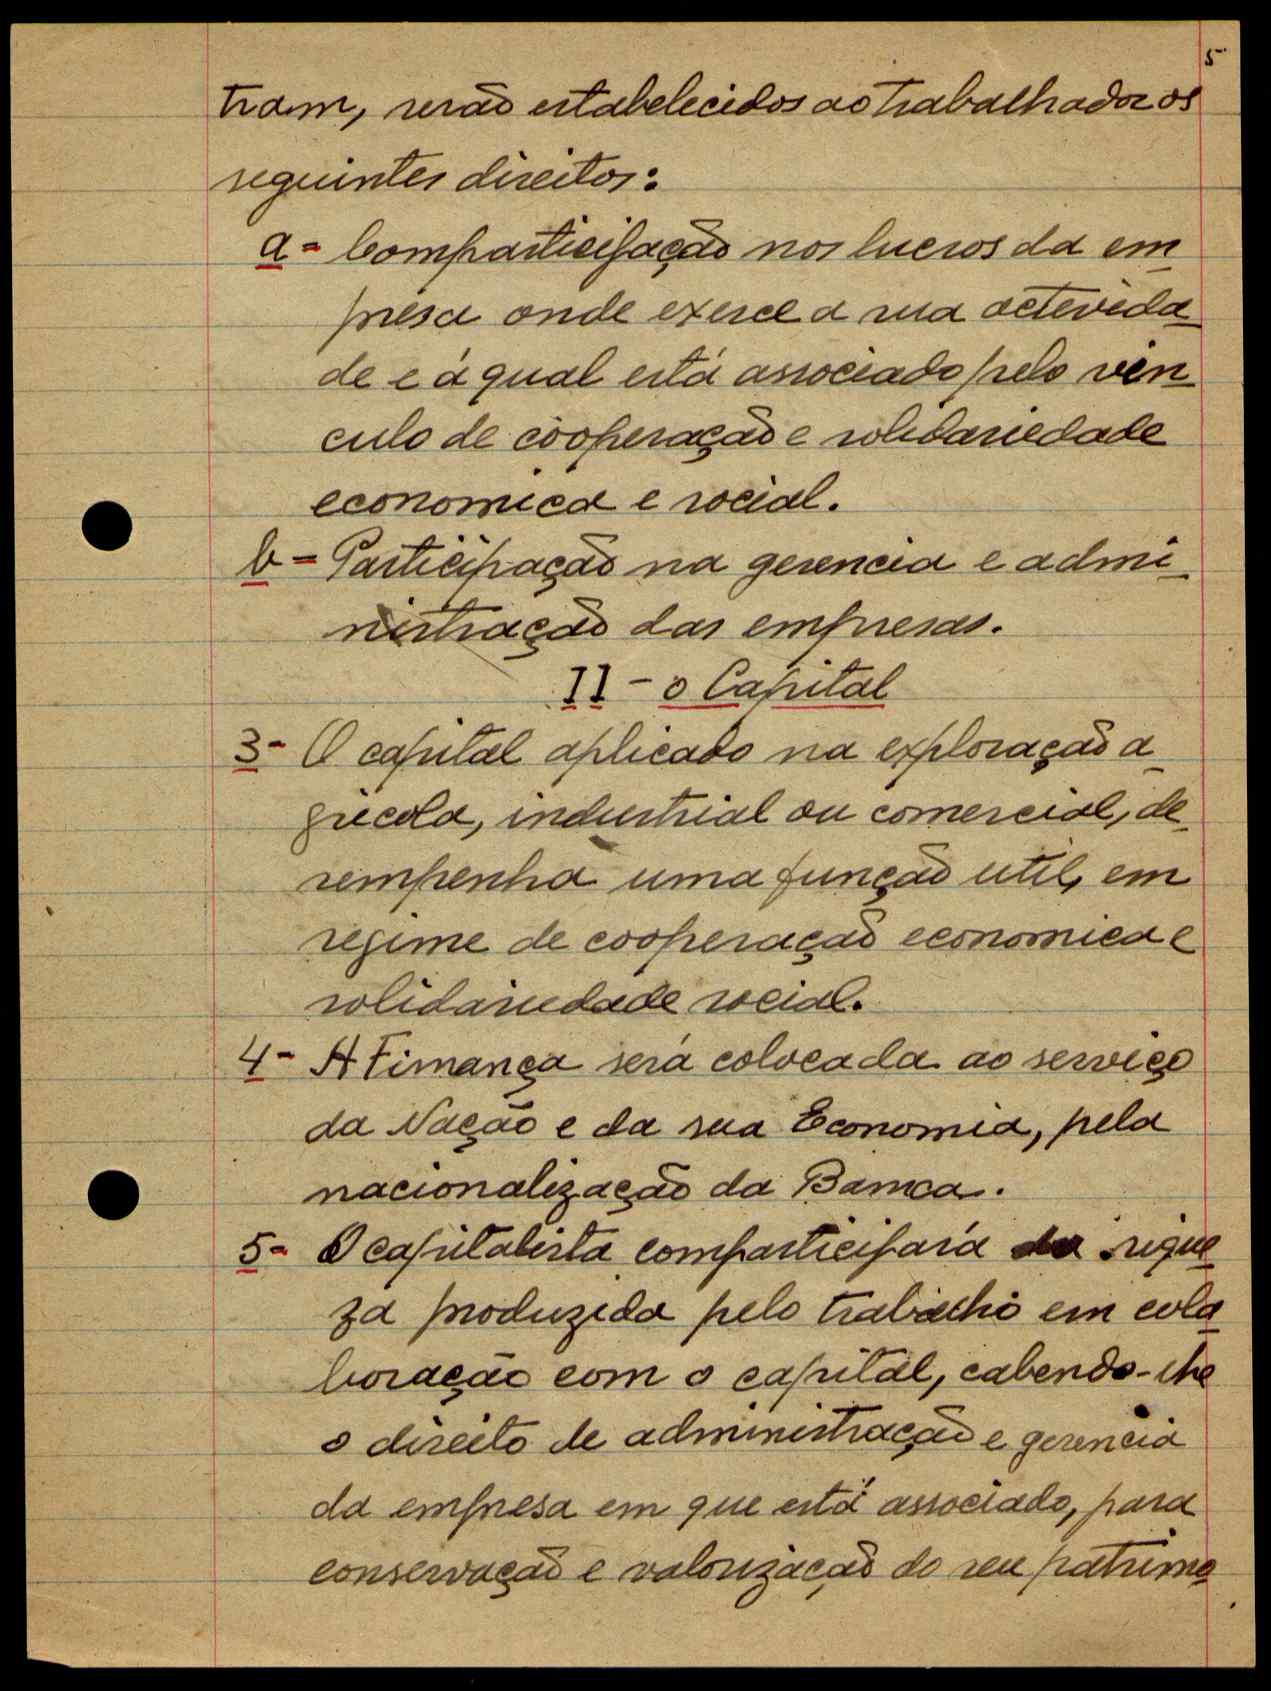 5
tram, serão estabelecidos ao trabalhador os
seguintes direitos:
a- Comparticipação nos lucros da em
presa onde exerce a sua actevida_
de e á qual está associado pelo vin_
culo de cooperação e solidariedade
economica e social.
b- Participação na gerencia e admi_
nistração das empresas.
II - o Capital
3- O capital aplicado na exploração a_
gricola, industrial ou comercial, de_
sempenha uma função util, em
regime de cooperação economica e
solidariedade social.
4- A Finança será colocada ao serviço
da Nação e da sua Economia, pela
nacionalização da Banca.
5- O capitalista comparticipará da rique
za produzida pelo trabalho em cola
boração com o capital, cabendo-lhe
o direito de administração e gerencia
da empresa em que está associado, para
conservação e valorização do seu patrimo